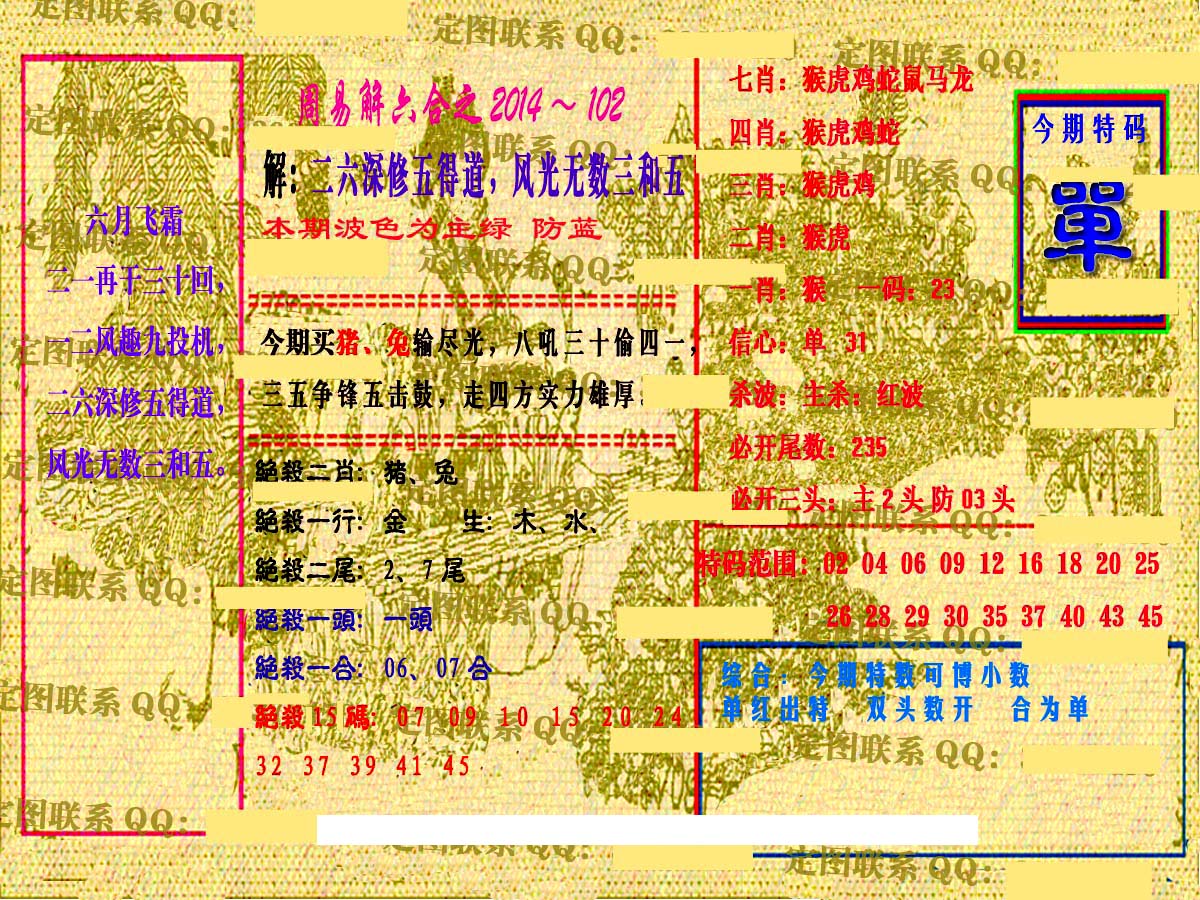 周易解六合之 2014～102
解：二六深修五得道，风光无数三和五
本期波色为主绿 防蓝
六月飞霜
二一再于三十回，
一二风趣九投机，
二六深修五得道，
风光无数三和五。
今期买猪、兔输尽光，八吼三十偷四一，
三五争锋五击鼓，走四方实力雄厚。
絕殺二肖：猪、兔
絕殺一行：金 生：木、水、
絕殺二尾：2、7 尾
絕殺一頭：一頭
絕殺一合：06、07 合
絕殺 15 碼：07 09 10 15 20 24
32 37 39 41 45
七肖：猴虎鸡蛇鼠马龙
四肖：猴虎鸡蛇
三肖：猴虎鸡
二肖：猴虎
一肖：猴 一码：23
信心：单 31
杀波：主杀：红波
必开尾数：235
必开三头：主 2 头 防 03 头
特码范围：02 04 06 09 12 16 18 20 25
26 28 29 30 35 37 40 43 45
今期特码
單
综合：今期特数可博小数
单红出特 双头数开 合为单
定图联系 QQ：
定图联系 QQ：
定图联系 QQ：
定图联系 QQ：
定图联系 QQ：
定图联系 QQ：
定图联系 QQ：
定图联系 QQ：